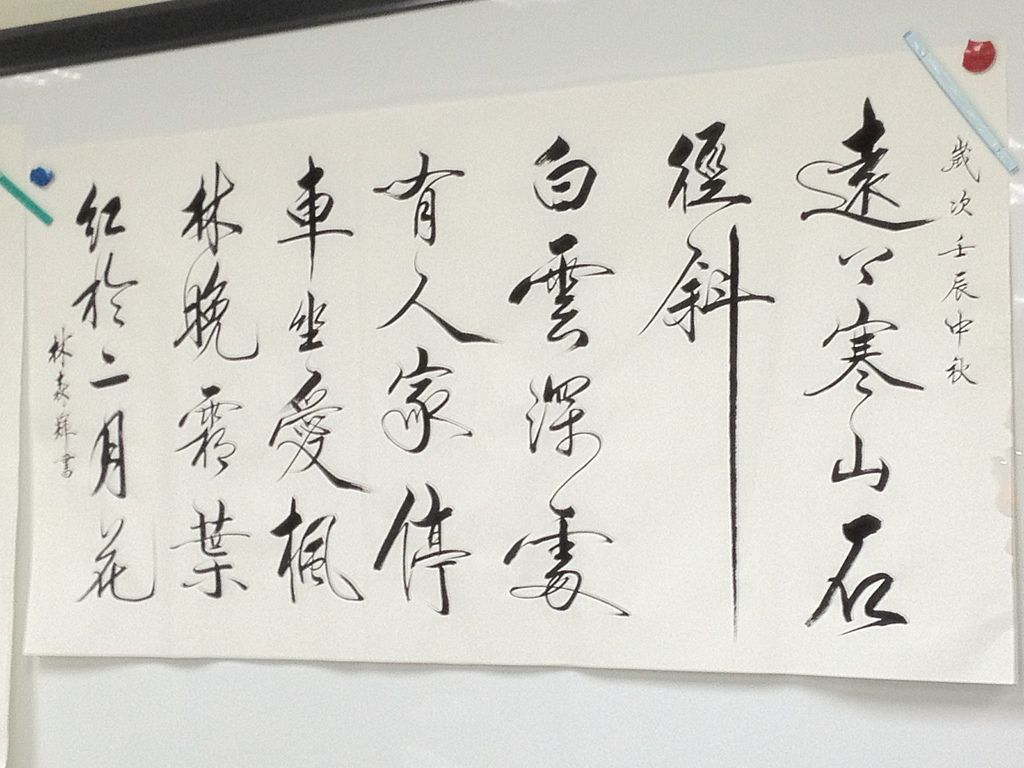 歲次壬辰中秋
遠上寒山石
徑斜
白雲深處
有人家停
車坐愛楓
林晚霜葉
紅於二月花
林森雄書